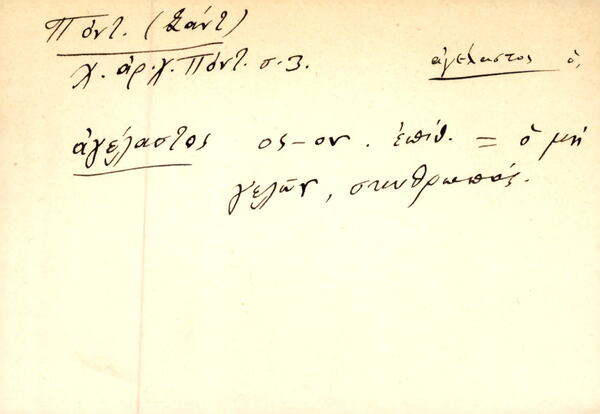 Πόντ. (Σάντ)
χ. ἀρ. γ. Πόντ. σ. 3.
ἀγέλαστος ὁ,
ἀγέλαστος ος-ον. ἐπίθ. = ὁ μὴ
γελῶν, σκυθρωπός.